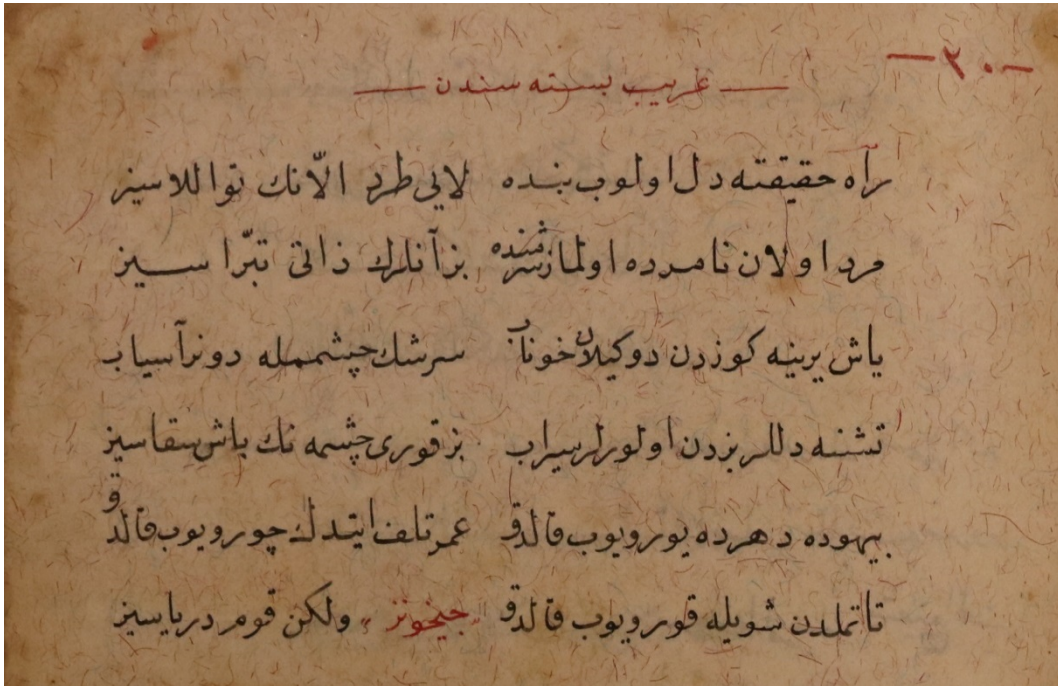 — ٣٠ —
غريب بسته سندن
راه حقيقته دل اولوب بنده لايی طرد الّانك توالاسيز
مرد اولان نامرده اولماز شرمنده بز آنلرك ذاتی تبرّا سيز
ياش يرينه كوزدن دوكيلان خوناب سرشك چشممله دونر آسياب
تشنه دللر بزدن اولورلر سيراب بز قوری چشمه نك باش سقاسيز
بيهوده دهرده يورويوب قالدق عمر تلف ايتدك چورويوب قالدق
تا تملدن شويله قورويوب قالدق جيحونز ولكن قوم دريا سيز